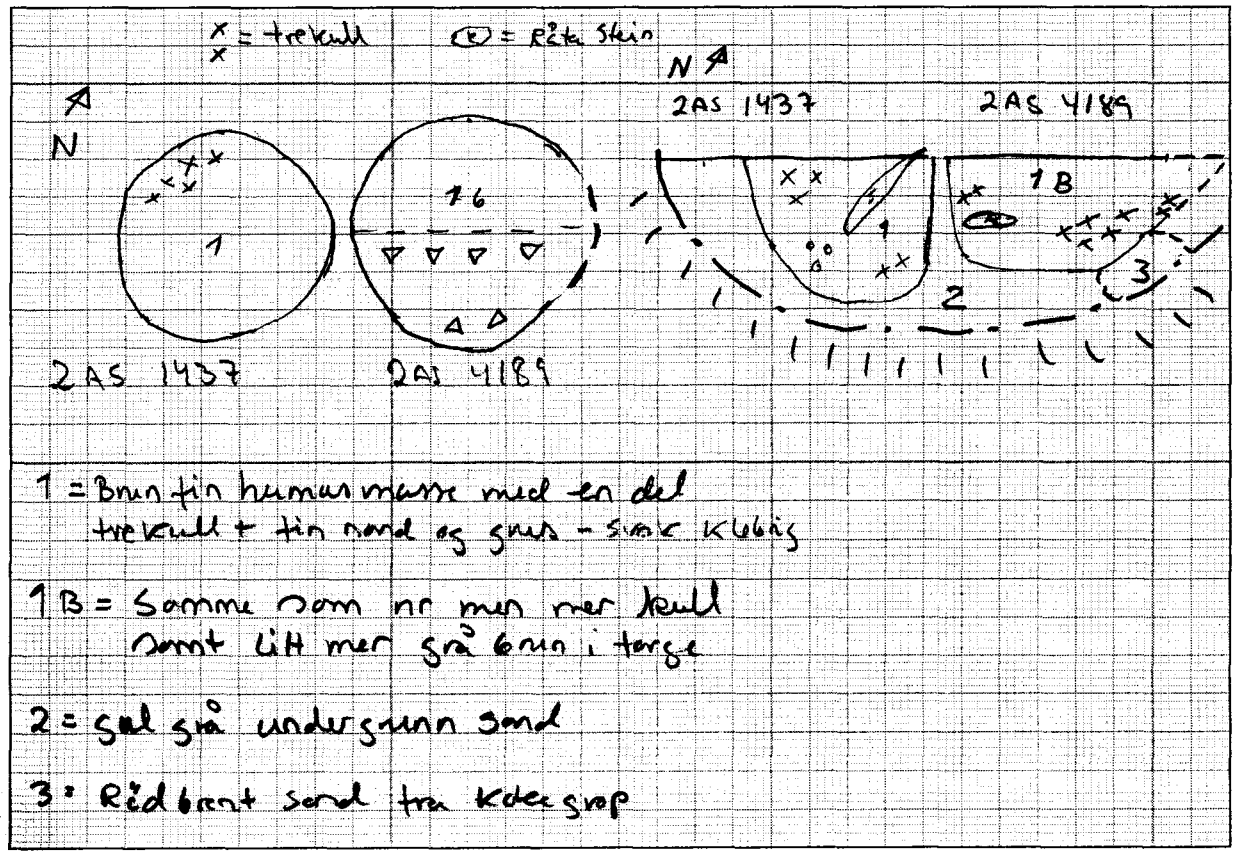 x = trekull
x
(x) = Råta Stein
N
N
2AS 1437
2AS 4189
1
1 6
1
1 B
2
3
2AS 1437
2AS 4189
1 = Brun fin humus masse med en del
trekull + fin sand og grus - svak klebrig
1 B = Samme som nr men mer kull
samt litt mer grå brun i farge
2 = gul grå undergrunn sand
3 = Rød brent sand fra kokegrop